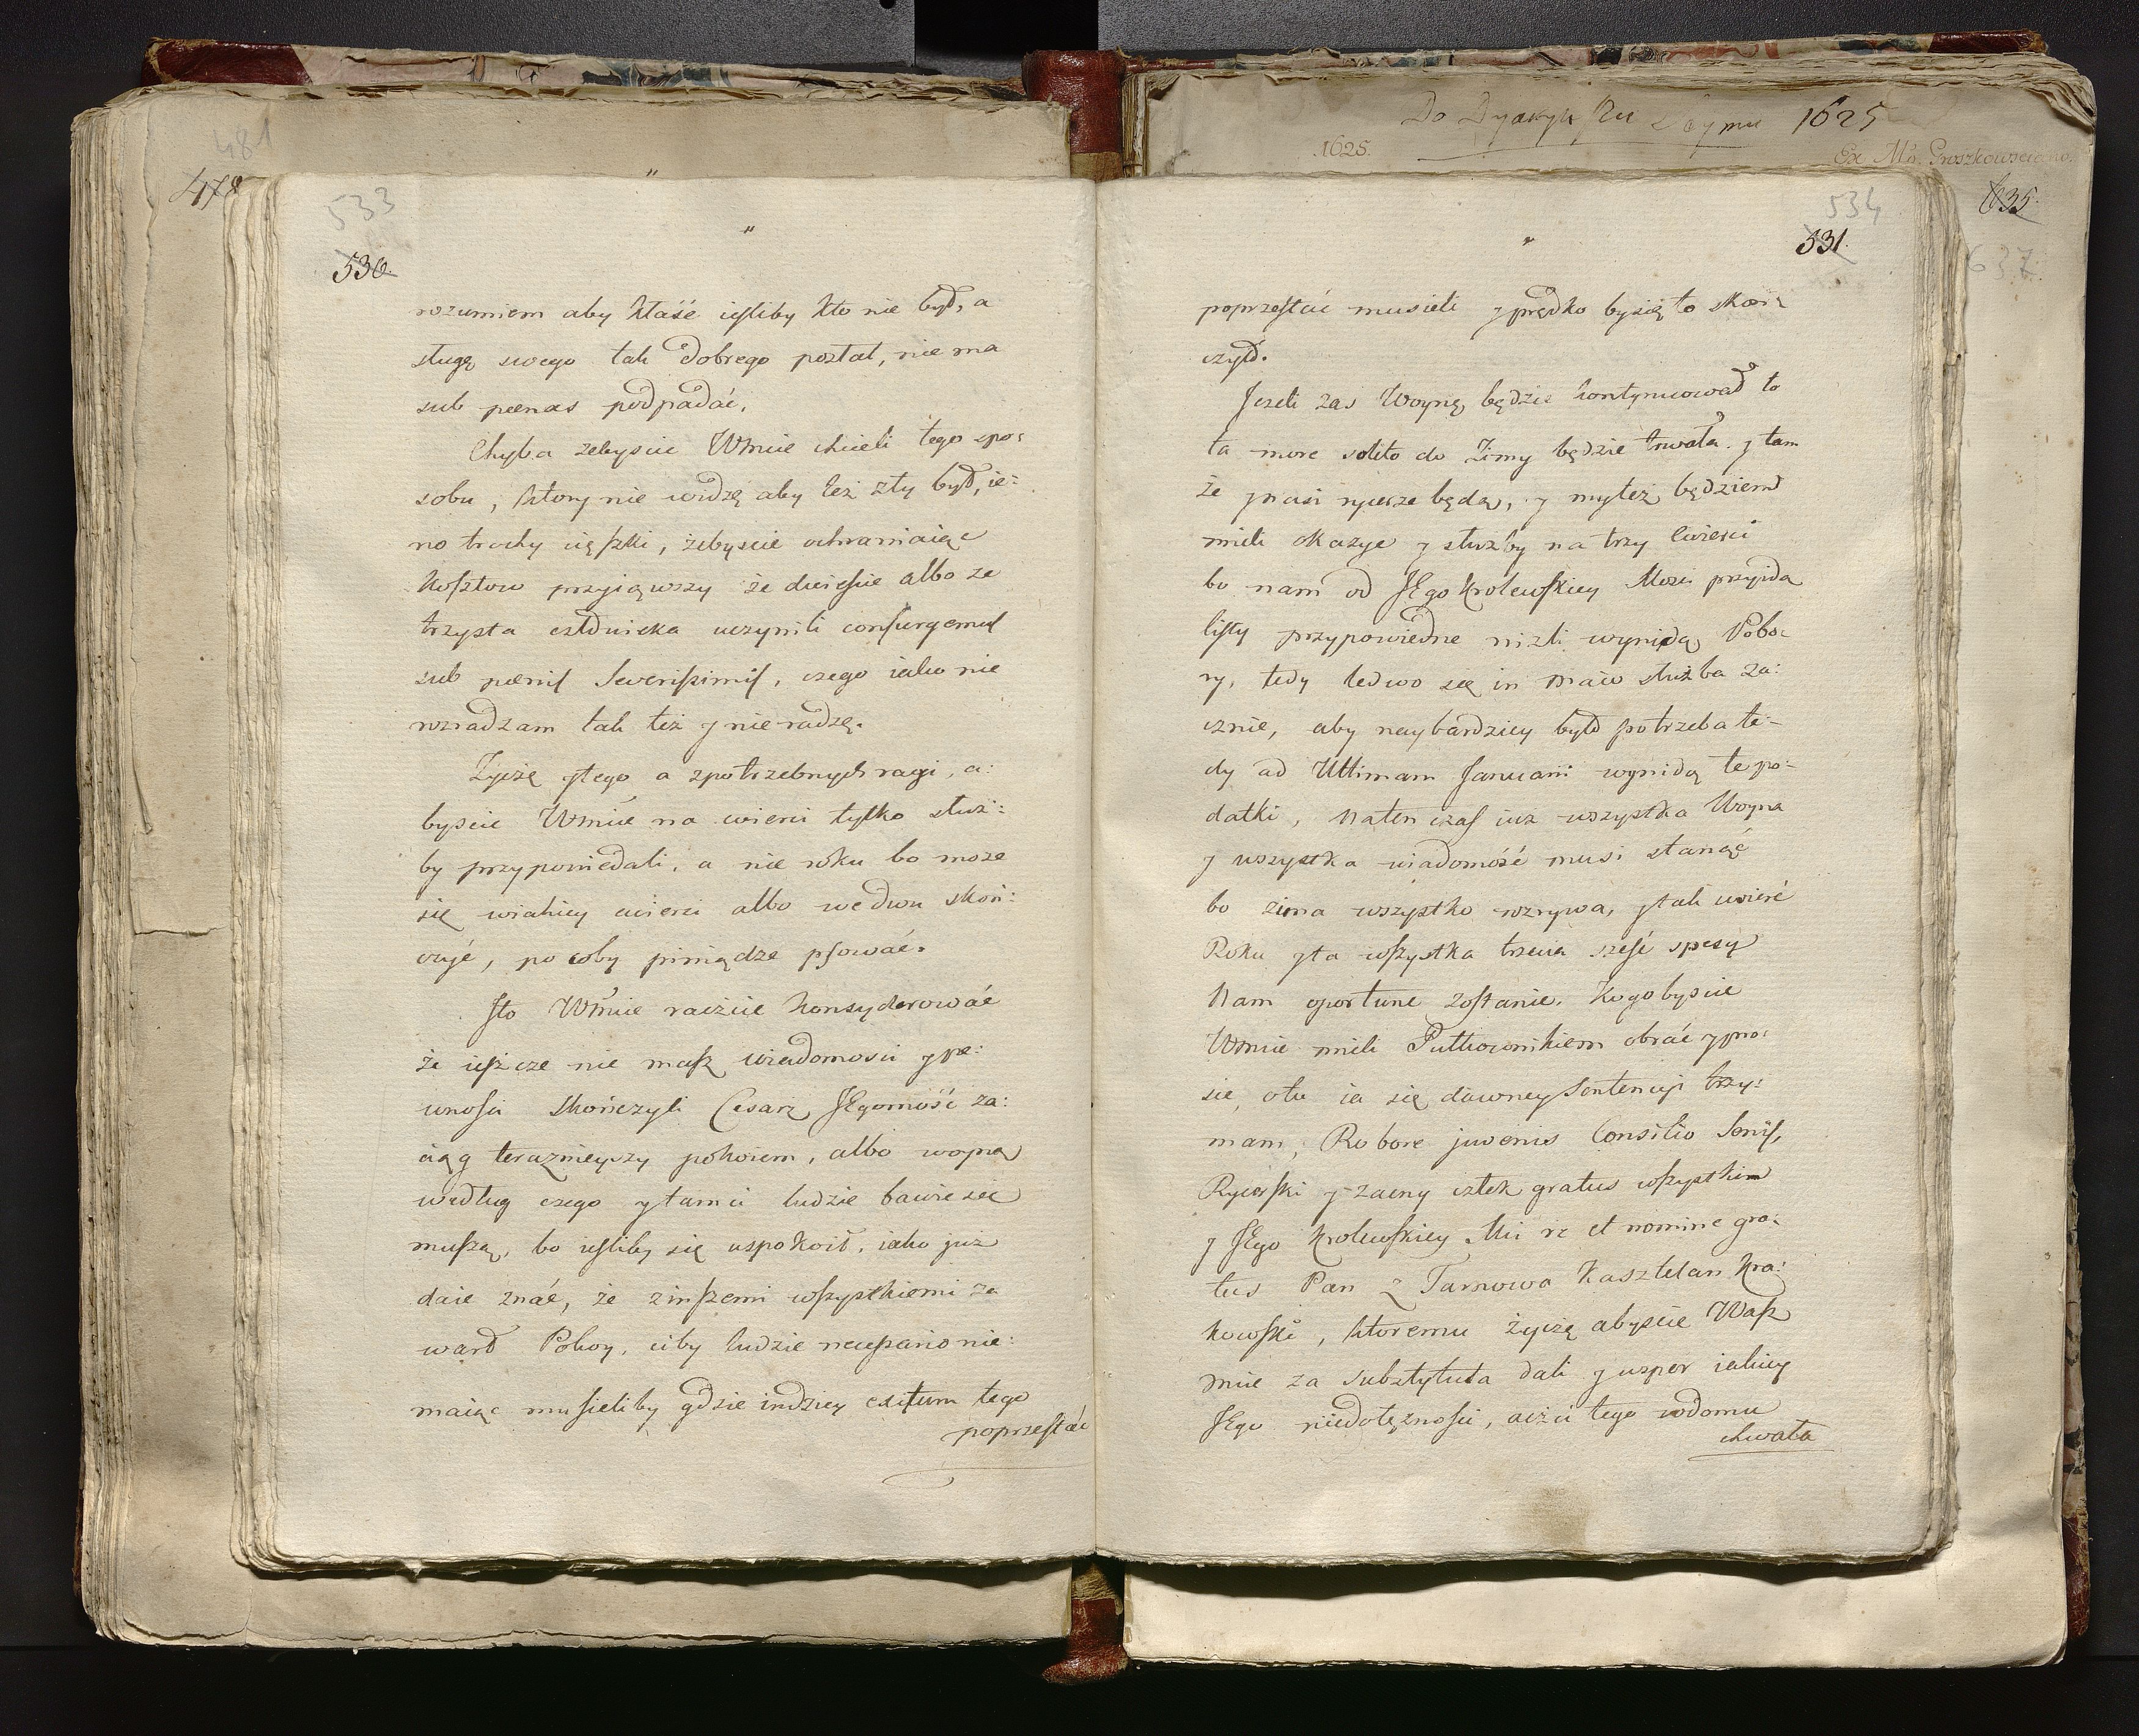 481
478
533
530.
rozumiem aby kłaść iesliby kto nie był, a
sługę swego tak dobrego posłał, nie ma
sub pœnas podpadać.
Chyba zebyscie Wmcie chcieli tego spo:
sobu, ktory nie widzę aby też zły był, ie:
no trochy cięſzki, żebyscie ochraniaiąc
koſztow przyiąwszy że dwieście albo ze
trzysta człowieka uczynili conſurgemuſ
sub pœniſ Severiſsimiſ, czego iako nie
rozradzam tak też y nie radzę.
Zyczę y tego a z potrzebnych racyi, a:
byscie Wmcie na cwierci tylko służ:
by przypowiedali, a nie roku bo może
się wiakiey cwierci albo we dwu skoń:
czyć, po coby pieniądze pſować.
Jto Wmcie raczcie konsyderować
że ieſzcze nie maſz wiadomosci y pe:
wnoſci skończyli Cesarz JEgomość za:
ciąg teraznieyszy pokoiem, albo woyną
według czego y tam ci ludzie bawić się
muſzą, bo iesliby się uspokoił, iako już
daie znać, że zinſzemi wſzystkiemi za
warł Pokoy, ciby ludzie neceſsario nie:
maiąc muſieliby gdzie indziey exitum tego
poprzeſtać
Do Dyaryuſzu Seymu 1625
1625.
Ex Mſs. Groszkowsciano.
635.
637.
534
531.
poprzeſtać musieli y prędko by się to skoń:
czyło.
Jezeli zas Woynę będzie kontynuował to
ta more solito do Zimy będzie trwała. y tam
że nasi rycerze będą, y my też będziem
mieli okazye y służby na trzy cwierci
bo nam od JEgo Krolewſkiey Mości przyida
liſty przypowiedne niżli wynidą Pobo:
ry, tedy ledwo się in Maio służba za:
cznie, aby naybardziey było potrzeba te-
dy ad Ultimam Januarii wynidą te po:
datki, Naten czaſ iuz wszystka Woyna
y wszystka wiadomość musi stanąć
bo zima wszystko rozrywa, y tak cwierć
Roku y ta wſzystka trzecia cześć spesy
Nam oportune zoſtanie. Kogobyscie
Wmcie mieli Pułkownikiem obrać y pro:
sie, oto ia się dawney Sentencyi trzy:
mam, Robore juvenis Consilio Seniſ,
Rycerſki y zacny człek gratus wſzystkim
y JEgo Krolewſkiey Mci re et nomine gra:
tus Pan z Tarnowa Kasztelan Kra:
kowſki, ktoremu życzę abyscie Waſz
mcie za substytuta dali y uspor iakiey
JEgo niedołężnoſci, acz ci tego rodomu
chwała